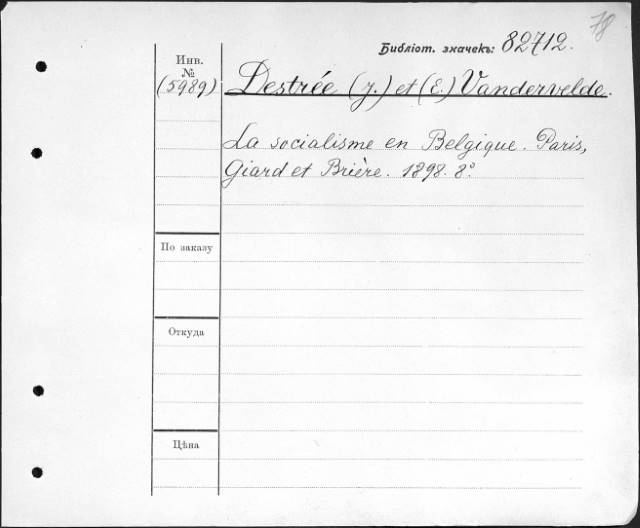 78
Библіот. значекъ: 82712.
Инв.
№
(5989)
Destrée (J.) et (E.) Vandervelde.
La socialisme en Belgique. Paris,
Giard et Brière. 1898. 8°.
По заказу
Откуда
Цѣна